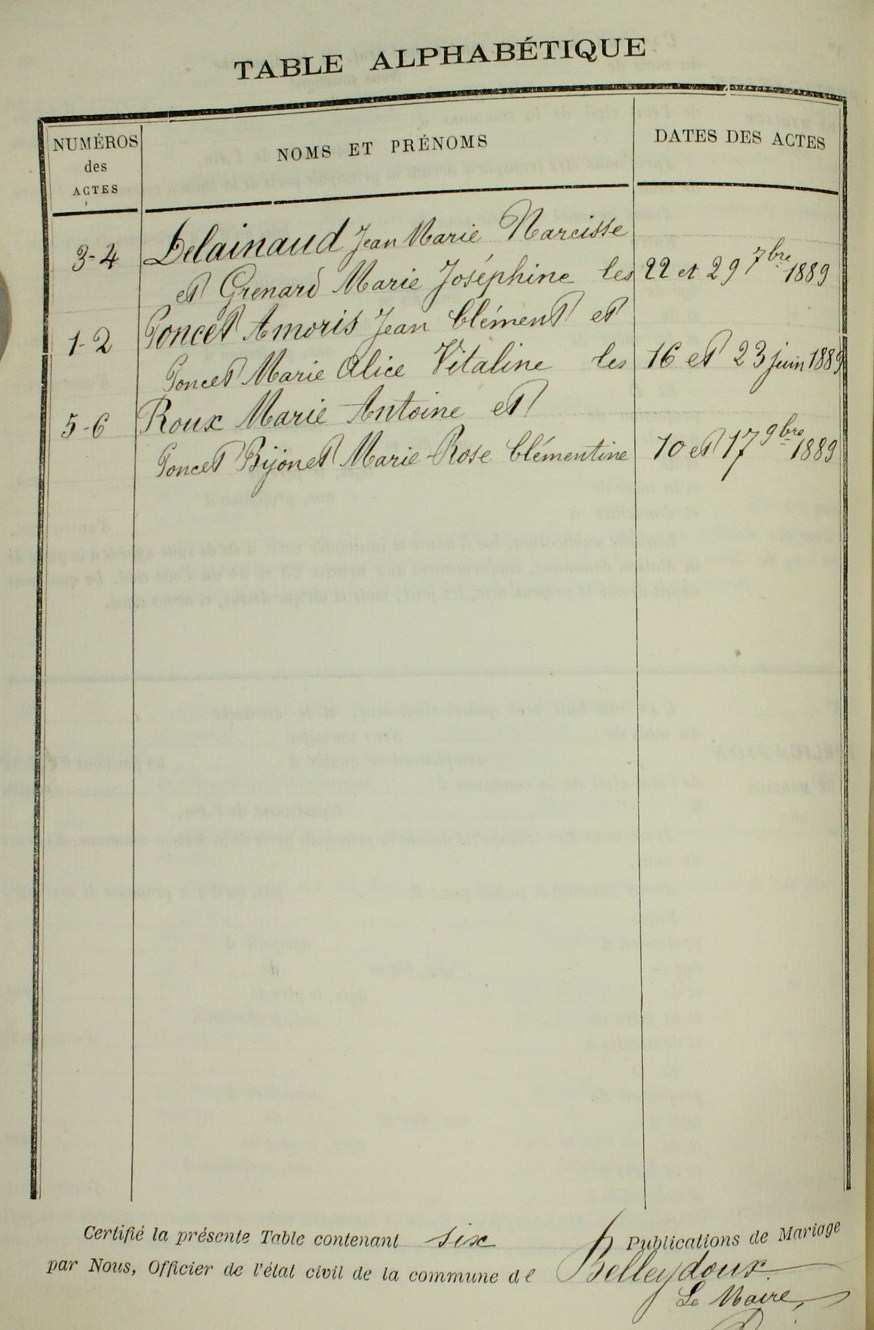 TABLE ALPHABÉTIQUE
NUMÉROS des ACTES
NOMS ET PRÉNOMS
DATES DES ACTES
3-4 Delainaud Jean Marie Narcisse
et Grenard Marie Joséphine les 22 et 29 7bre 1889
1-2 Poncet Amoris Jean Clément et
Poncet Marie Alice Vitaline les 16 et 23 juin 1889
5-6 Roux Marie Antoine et
Poncet Bijonet Marie-Rose Clémentine 10 et 17 9bre 1889
Certifié la présente Table contenant six Publications de Mariage
par Nous, Officier de l'état civil de la commune de Belleydoux.
Le Maire,